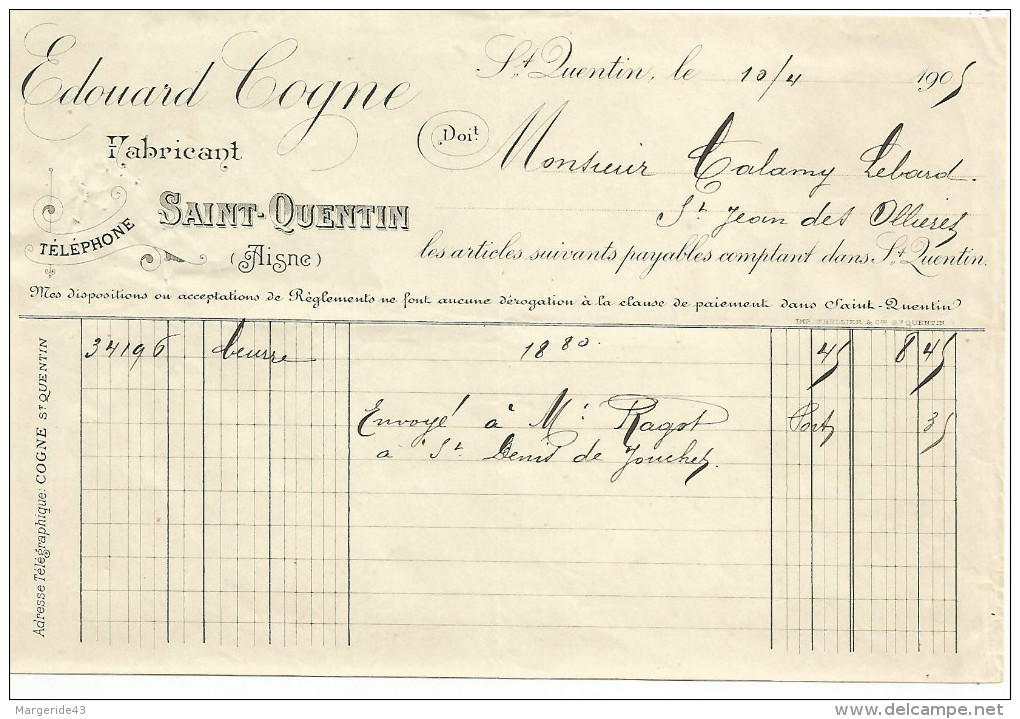 Edouard Cogne
St Quentin, le 10/4 1905
Fabricant
Doit Monsieur Calamy Lebard.
SAINT-QUENTIN
St Jean des Ollieres
TÉLÉPHONE
(Aisne)
les articles suivants payables comptant dans St Quentin.
Mes dispositions ou acceptations de Règlements ne font aucune dérogation à la clause de paiement dans Saint-Quentin
IMP. THELLIER & Cie ST QUENTIN
34196 beurre 18 80. 45 8 45
Envoyé à Mr Ragot Port 35
a St Denis de Jouhet.
Adresse Télégraphique: COGNE ST QUENTIN
Margeride43
www.delcampe.net